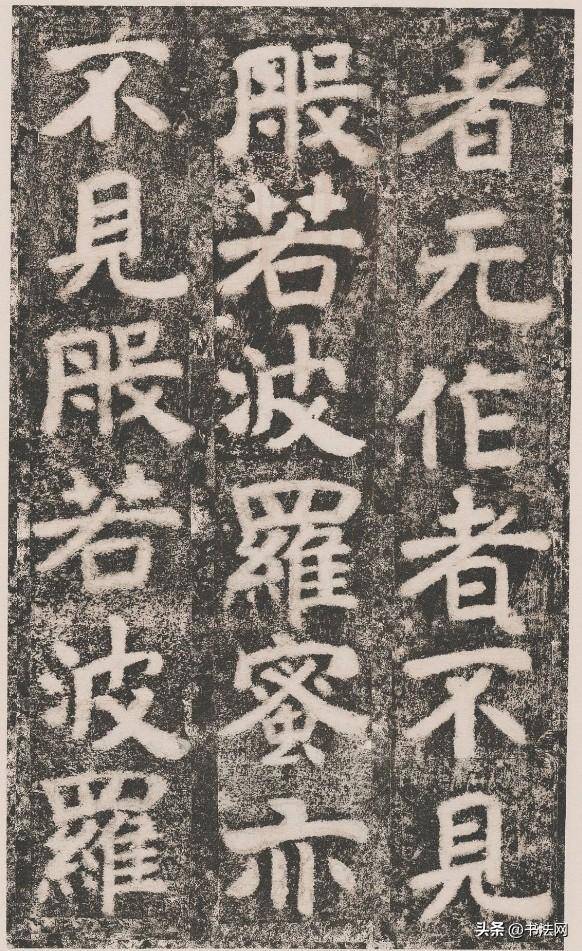 者无作者不見
般若波羅蜜亦
不見般若波羅
头条@书法网